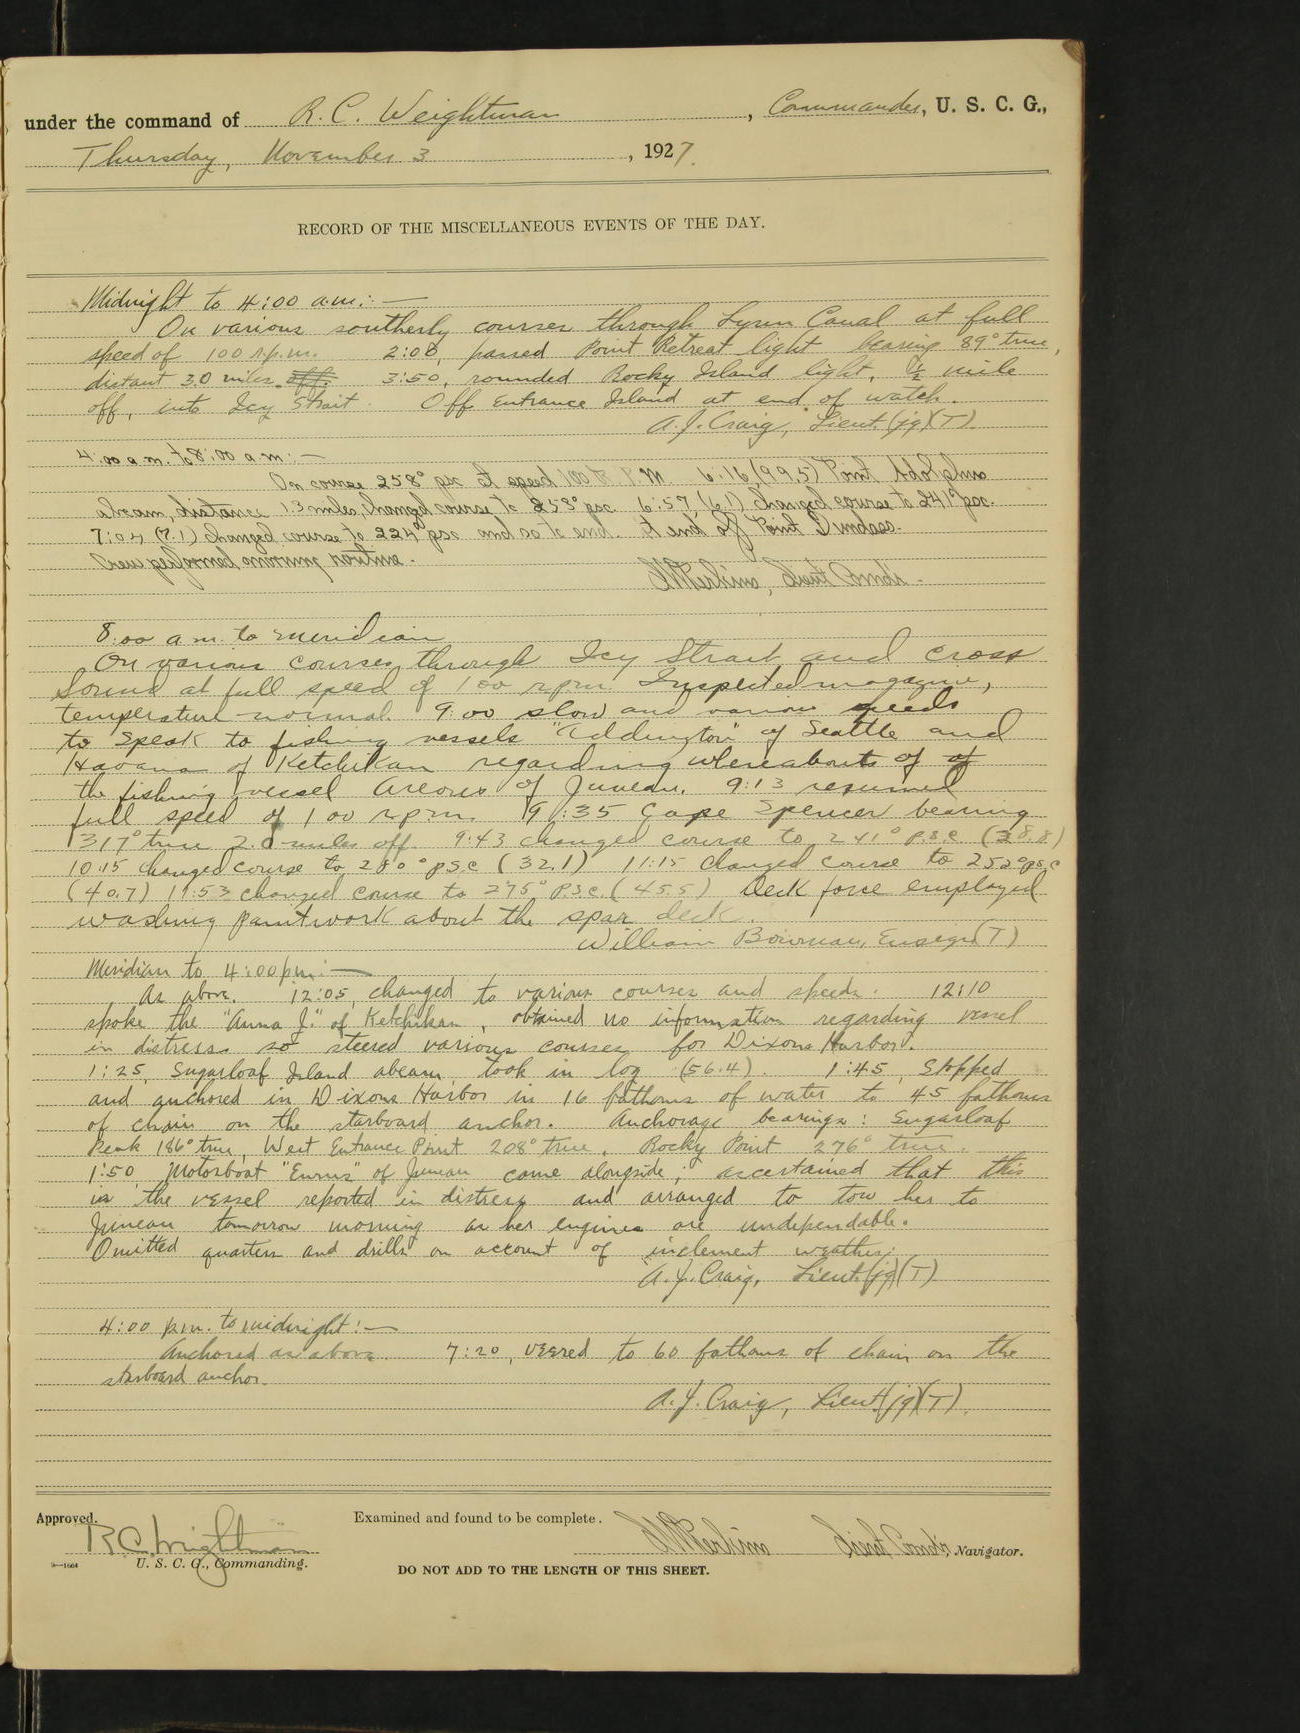 under the command of R. C. Weightman, Commander, U. S. C. G.,
Thursday, November 3, 1927.
RECORD OF THE MISCELLANEOUS EVENTS OF THE DAY.
Midnight to 4:00 a.m.:—
On various southerly courses through Lynn Canal at full
speed of 100 r.p.m. 2:00, passed Point Retreat light bearing 89° true,
distant 3.0 miles off. 3:50, rounded Rocky Island light, ½ mile
off, into Icy Strait. Off Entrance Island at end of watch.
A. J. Craig, Lieut. (jg)(T).
4:00 a.m. to 8:00 a.m.:—
On course 258° psc at speed 100 R.P.M. 6:16, (99.5) Point Adolphus
abeam, distance 1.3 miles, changed course to 253° psc. 6:57, (6.1) changed course to 241° psc.
7:04 (7.1) changed course to 224° psc and so to end. At end off Point Dundass.
Crew performed morning routine.
Lieut. Comdr.
8:00 a.m. to meridian
On various courses through Icy Strait and Cross
Sound at full speed of 100 rpm. Inspected magazine,
temperature normal. 9:00 slow and various speeds
to speak to fishing vessels "Eddington" of Seattle and
Havana of Ketchikan regarding whereabouts of of
the fishing vessel of Juneau. 9:13 resumed
full speed of 100 rpm. 9:35 Cape Spencer bearing
317° true 2.0 miles off. 9:43 changed course to 241° p.s.c (28.8)
10:15 changed course to 280° psc (32.1) 11:15 changed course to 252° psc
(40.7) 11:53 changed course to 275° p.s.c. (45.5) Deck force employed
washing paintwork about the spar deck.
William Bowman, Ensign (T)
Meridian to 4:00 p.m.:—
As above. 12:05, changed to various courses and speeds. 12:10
spoke the "Anna J." of Ketchikan, obtained no information regarding vessel
in distress so steered various courses for Dixons Harbor.
1:25, Sugarloaf Island abeam, took in log (56.4). 1:45, Stopped
and anchored in Dixons Harbor in 16 fathoms of water to 45 fathoms
of chain on the starboard anchor. Anchorage bearings: Sugarloaf
Peak 186° true, West Entrance Point 208° true, Rocky Point 276° true.
1:50, Motorboat of Juneau came alongside; ascertained that this
is the vessel reported in distress and arranged to tow her to
Juneau tomorrow morning as her engines are undependable.
Omitted quarters and drills on account of inclement weather.
A. J. Craig, Lieut. (jg)(T)
4:00 p.m. to midnight:—
Anchored as above. 7:20, veered to 60 fathoms of chain on the
starboard anchor.
A. J. Craig, Lieut. (jg)(T).
Approved.
Examined and found to be complete.
R C Weightman
Lieut. Comdr. Navigator.
9—1664 U. S. C. G., Commanding.
DO NOT ADD TO THE LENGTH OF THIS SHEET.